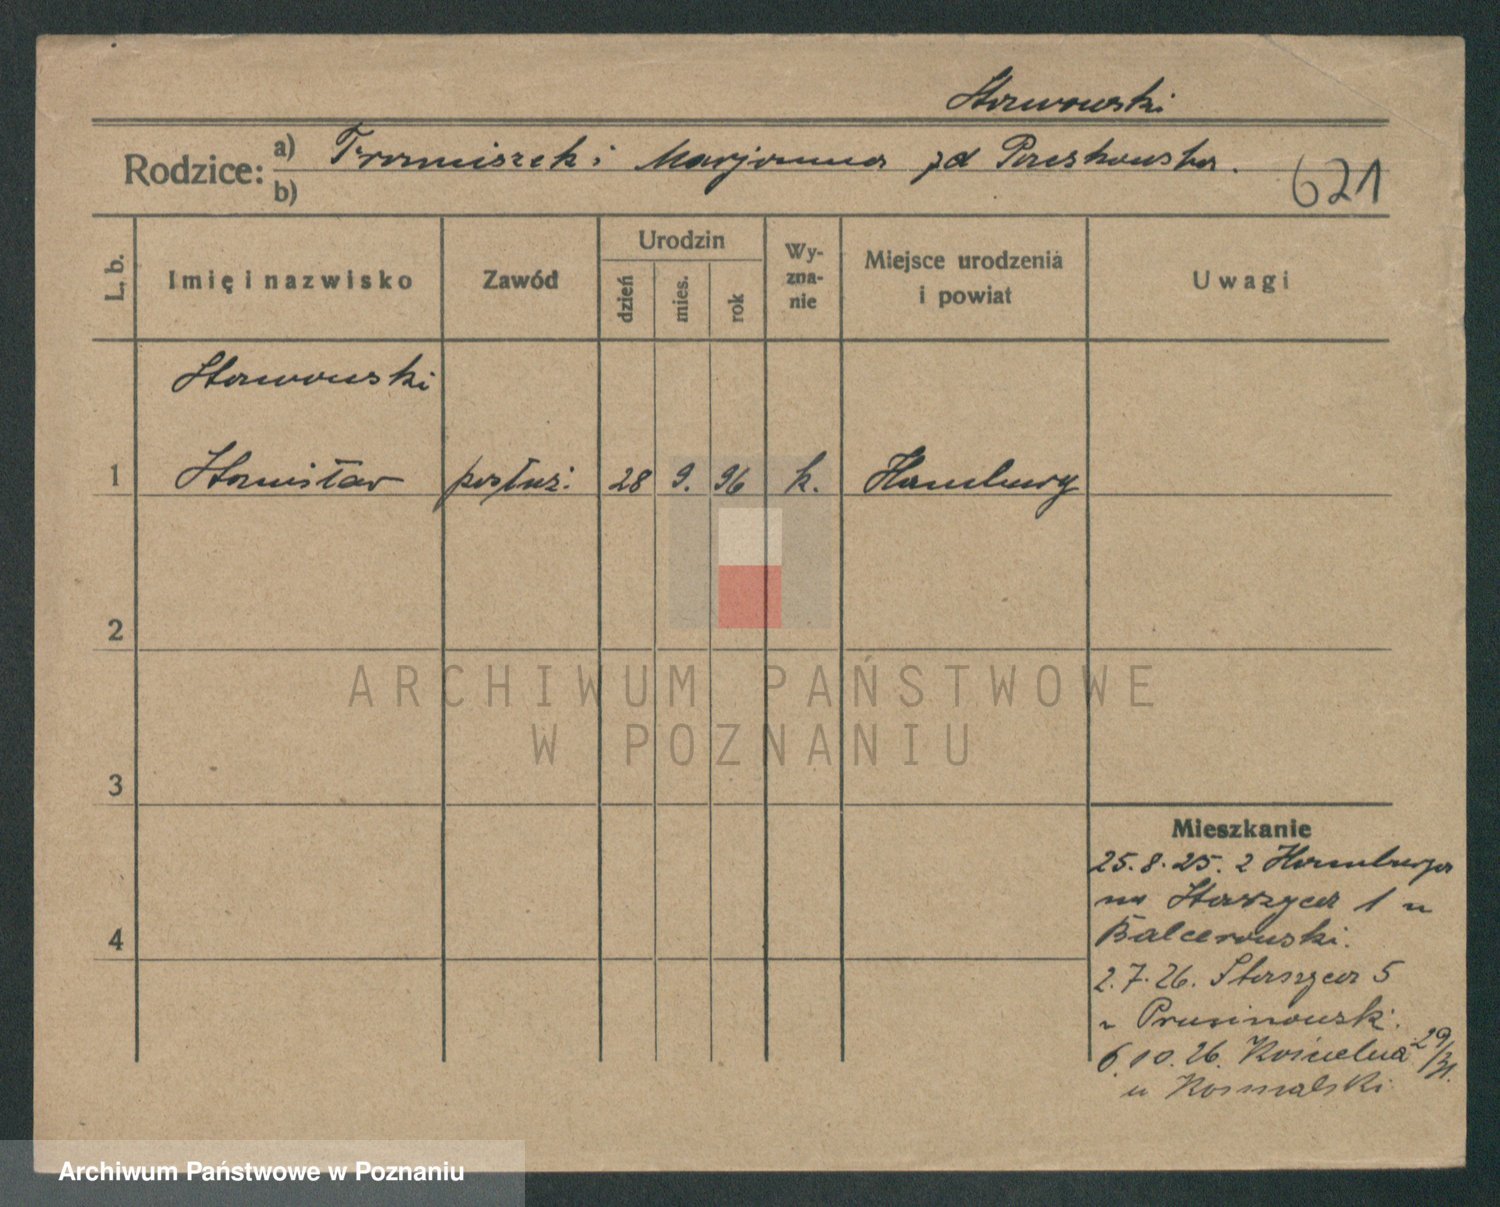 Stawowski
Rodzice: a) Franciszek i Marjanna zd Paczkowska.
b)
621
L. b. Imię i nazwisko Zawód Urodzin dzień mies. rok Wy-zna-nie Miejsce urodzenia i powiat Uwagi
Stawowski
1 Stanisław posłuż. 28 9. 96 k. Hamburg
2
ARCHIWUM PAŃSTWOWE
W POZNANIU
3
Mieszkanie
25.8.25. z Hamburga
na Staszyca 1 u
4 Balcerowski.
2.7.26. Staszyca 5
u Prusinowski.
6.10.26. Kościelna 29/31.
u Kosmalski
Archiwum Państwowe w Poznaniu